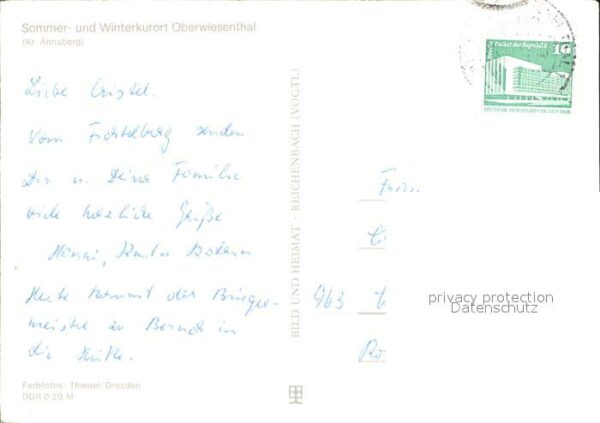 Sommer- und Winterkurort Oberwiesenthal
(Kr. Annaberg)
Liebe Cristel.
Vom Fichtelberg senden
Dir u. Deine Familie
viele herzliche Grüße
Heute kommt der Bürger-
meister zu Besuch in
die Hütte.
Farbfotos: Thienel, Dresden
DDR 0,20 M
BILD UND HEIMAT · REICHENBACH (VOGTL)
Berlin Palast der Republik 10
DEUTSCHE DEMOKRATISCHE REPUBLIK
963
privacy protection
Datenschutz